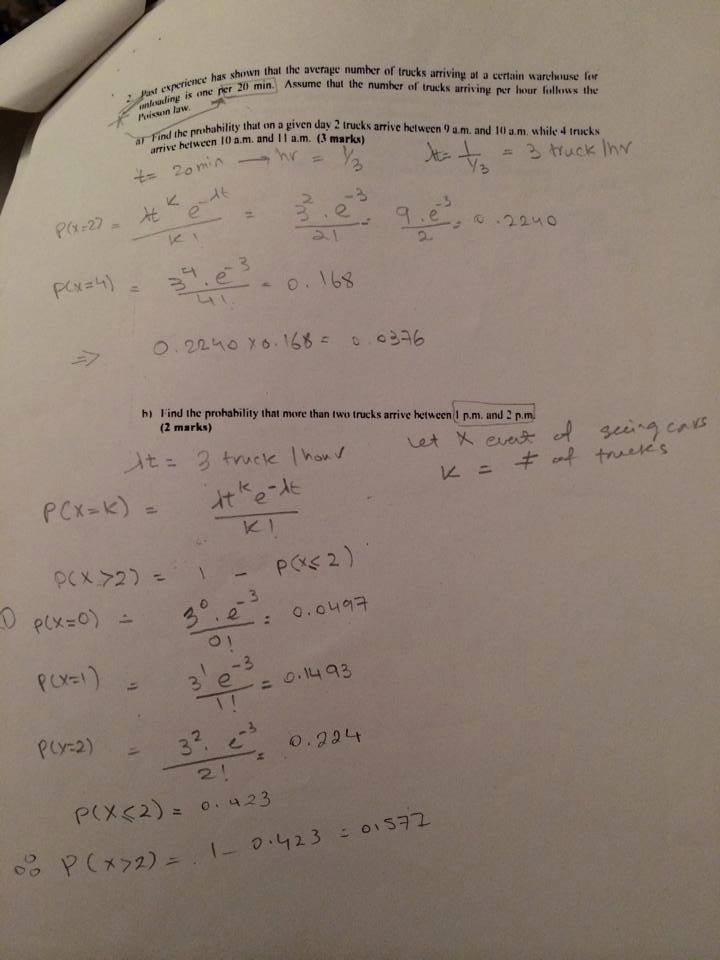 2. Past experience has shown that the average number of trucks arriving at a certain warehouse for
unloading is one per 20 min. Assume that the number of trucks arriving per hour follows the
Poisson law.
a) Find the probability that on a given day 2 trucks arrive between 9 a.m. and 10 a.m. while 4 trucks
arrive between 10 a.m. and 11 a.m. (3 marks)
t = 20 min → hr = 1/3 λt = 1/(1/3) = 3 truck/hr
P(x=2) = λt^k e^-λt / k! = 3^2 . e^-3 / 2! = 9 . e^-3 / 2 = 0.2240
P(x=4) = 3^4 . e^-3 / 4! = 0.168
⇒ 0.2240 x 0.168 = 0.0376
b) Find the probability that more than two trucks arrive between 1 p.m. and 2 p.m.
(2 marks)
λt = 3 truck / hour
Let X event of seeing cars
K = # of trucks
P(X=K) = λt^k e^-λt / K!
P(X>2) = 1 - P(X≤2)
P(X=0) = 3^0 . e^-3 / 0! = 0.0497
P(X=1) = 3^1 e^-3 / 1! = 0.1493
P(X=2) = 3^2 . e^-3 / 2! = 0.224
P(X≤2) = 0.423
∴ P(X>2) = 1 - 0.423 = 0.577